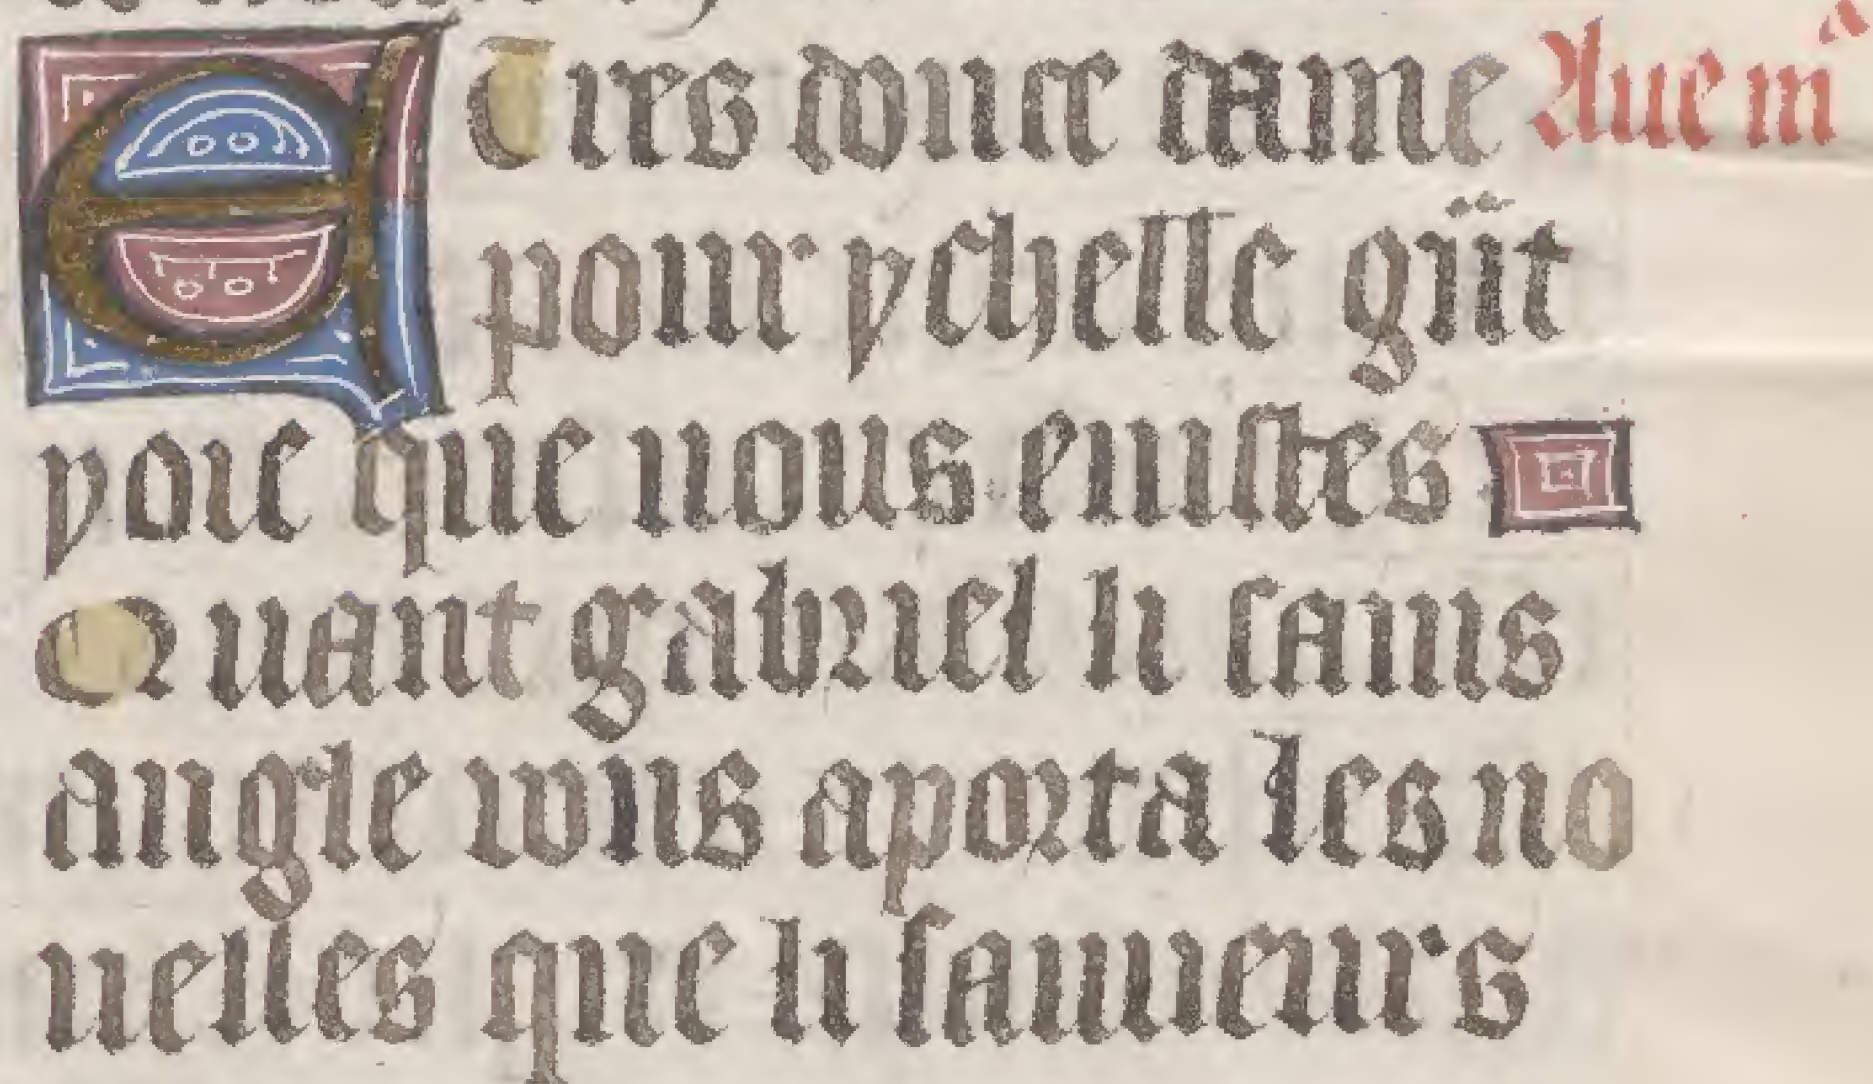 E Tres douce dame Aue mª
pour ychelle g̃nt
yoie que uous eustes
Quant gabriel li sains
angle uous aporta les no
uelles que li sauueurs